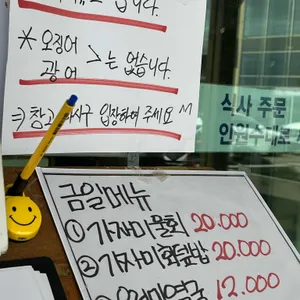 습니다.
* 오징어
광어 >는 없습니다.
=> 참고 하시구 입장하여 주세요
식사 주문
인원수대로
금일메뉴
① 가자미물회 20.000
② 가자미회덮밥 20.000
12.000